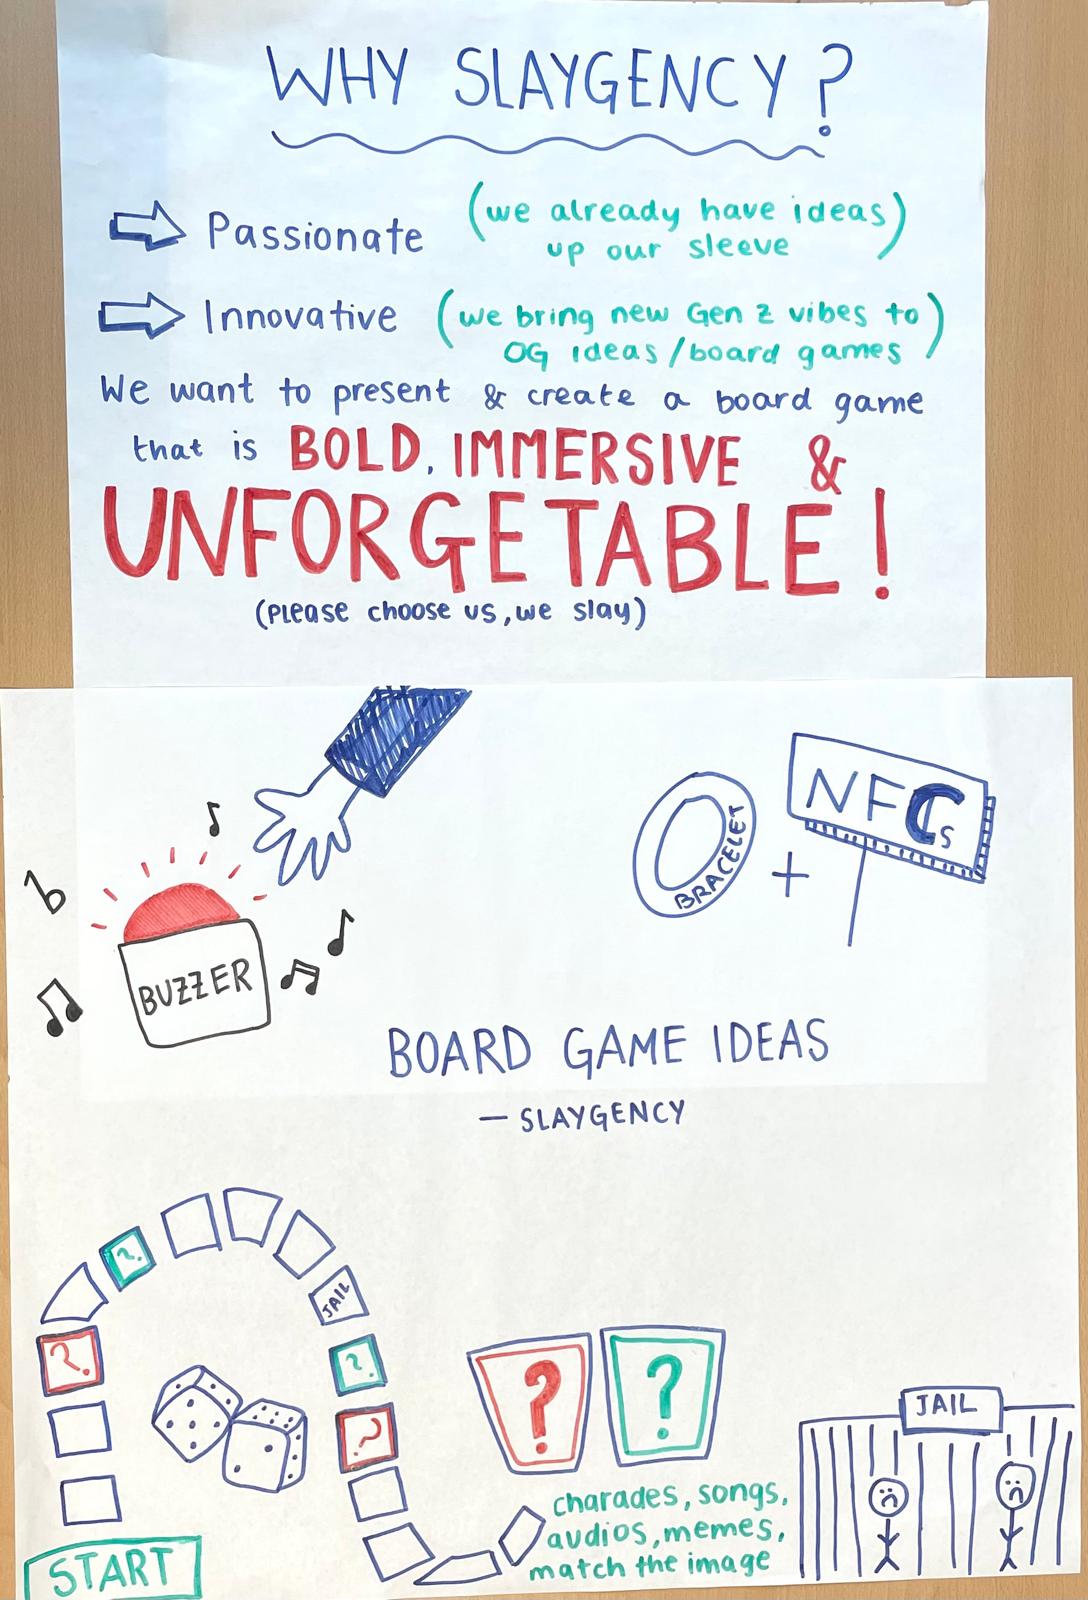 WHY SLAYGENCY?
Passionate (we already have ideas
up our sleeve)
Innovative (we bring new Gen Z vibes to
OG ideas/board games)
We want to present & create a board game
that is BOLD, IMMERSIVE &
UNFORGETABLE!
(Please choose us, we slay)
NFCs
BRACELET +
BUZZER
BOARD GAME IDEAS
— SLAYGENCY
?
JAIL
?
?
? ?
?
JAIL
charades, songs,
audios, memes,
match the image
START